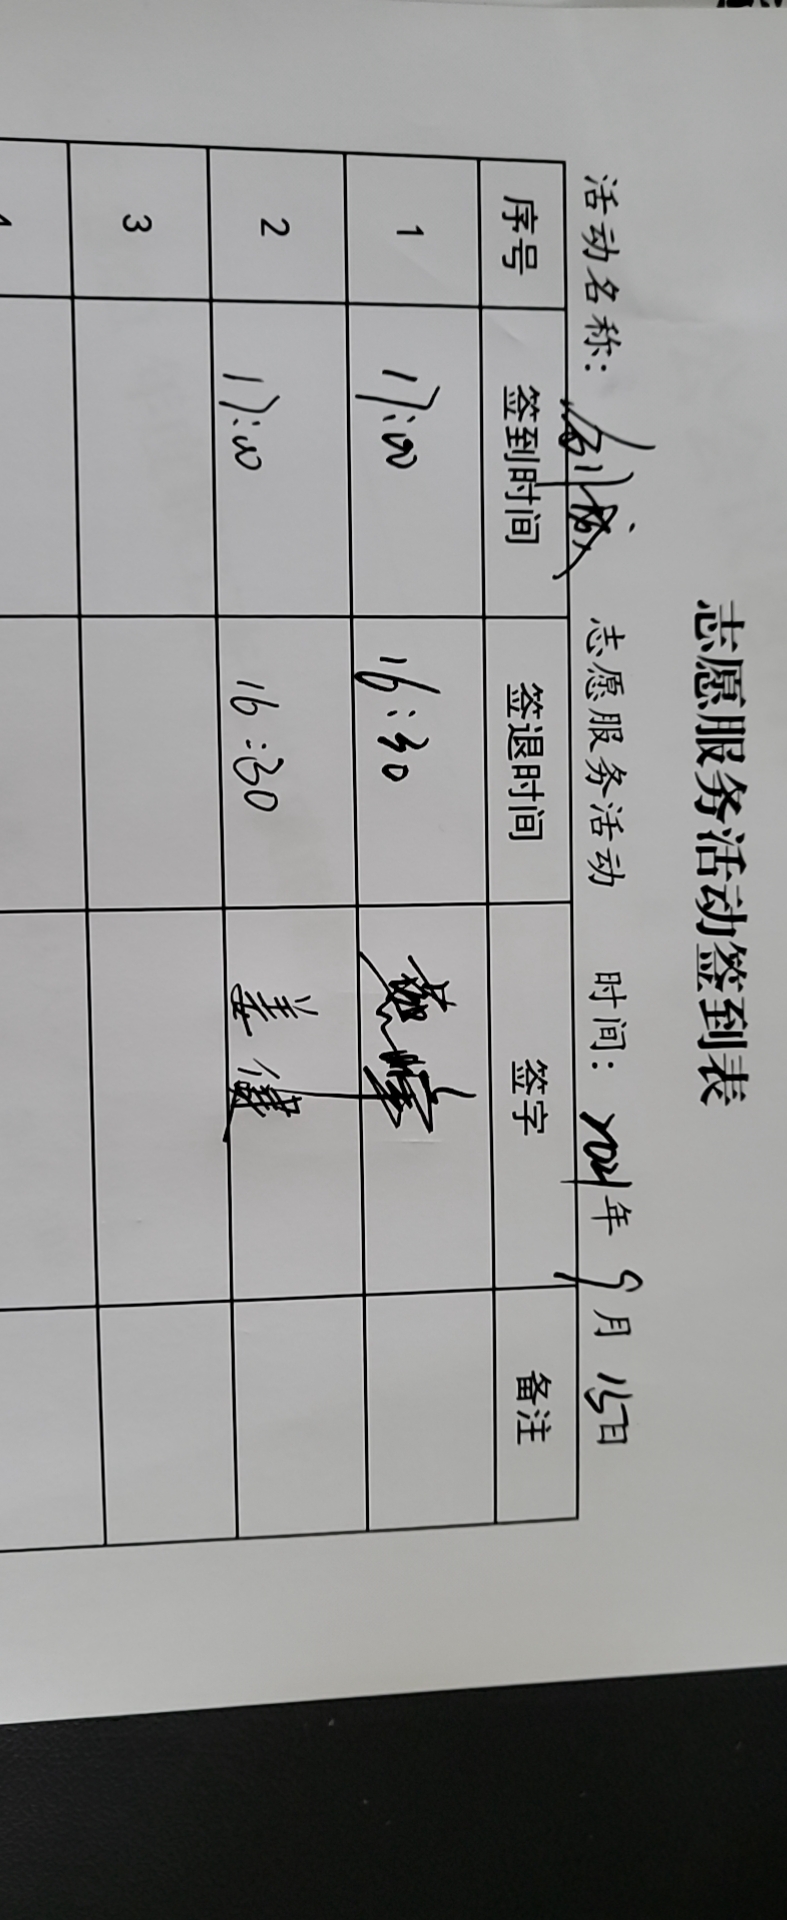 志愿服务活动签到表
活动名称: 创城 志愿服务活动 时间: 2021年 9月 15日
序号 签到时间 签退时间 签字 备注
1 17:00 16:30
2 17:00 16:30 姜健
3
4